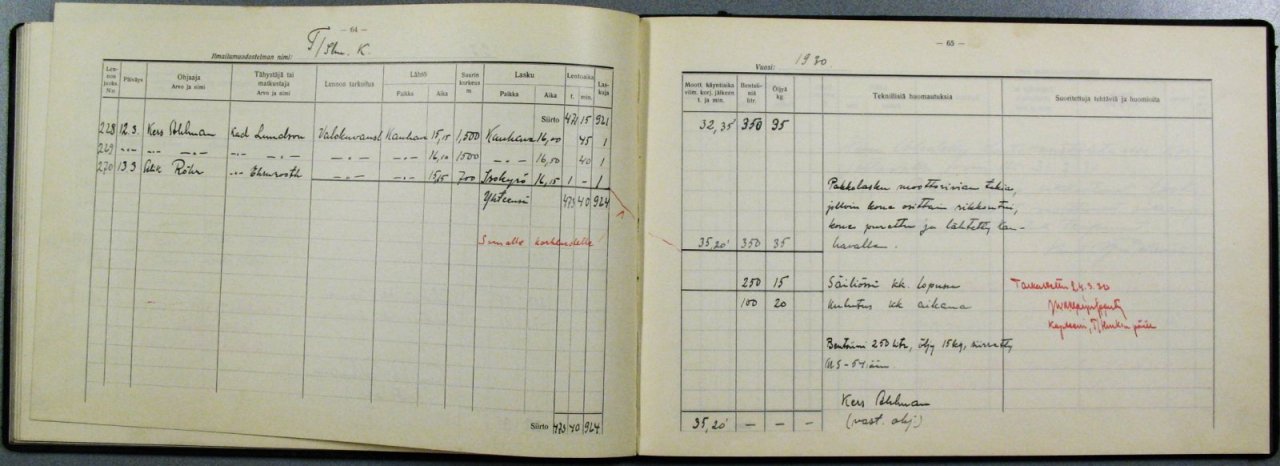 — 64 —
Ilmailumuodostelman nimi: T/Llv. K.
Len-
non
juoks.
No
Päiväys
Ohjaaja
Arvo ja nimi
Tähystäjä tai
matkustaja
Arvo ja nimi
Lennon tarkoitus
Lähtö
Paikka Aika
Suurin
korkeus
m.
Lasku
Paikka Aika
Lentoaika
t. min.
Las-
kuja
Siirto 471 15 921
228 12.3. Kers Ahlman Kad Lundson Valokuvausl Kauhava 15,15 1,500 Kauhava 16,00 45 1
229 -"- -"- -"- -"- 16,10 1500 -"- 16,50 40 1
270 13.3 Alik Röhr -"- Ehrnrooth -"- -"- 15,15 700 Isokyrö 16,15 1 - 1
Yhteensä 473 40 924
korkeudelle
Siirto 473 40 924
— 65 —
Vuosi: 1930
Moott. käyntiaika
viim. korj. jälkeen
t. ja min.
Bentsii-
niä
litr.
Öljyä
kg.
Teknillisiä huomautuksia
Suoritettuja tehtäviä ja huomioita
32,35 350 35
Pakkolasku moottorivian takia,
jolloin kone osittain rikkoutui,
kone purettu ja lähtetty Kau-
havalle.
35,20 350 35
250 15 Säiliössä kk. lopussa
100 20 Kulutus kk aikana
Tarkastettu 24.3.30
Kapteeni,
Bentsiini 250 ltr, öljy 15 kg, siirretty
Kers Ahlman
(vast. ohj)
35,20 — — —